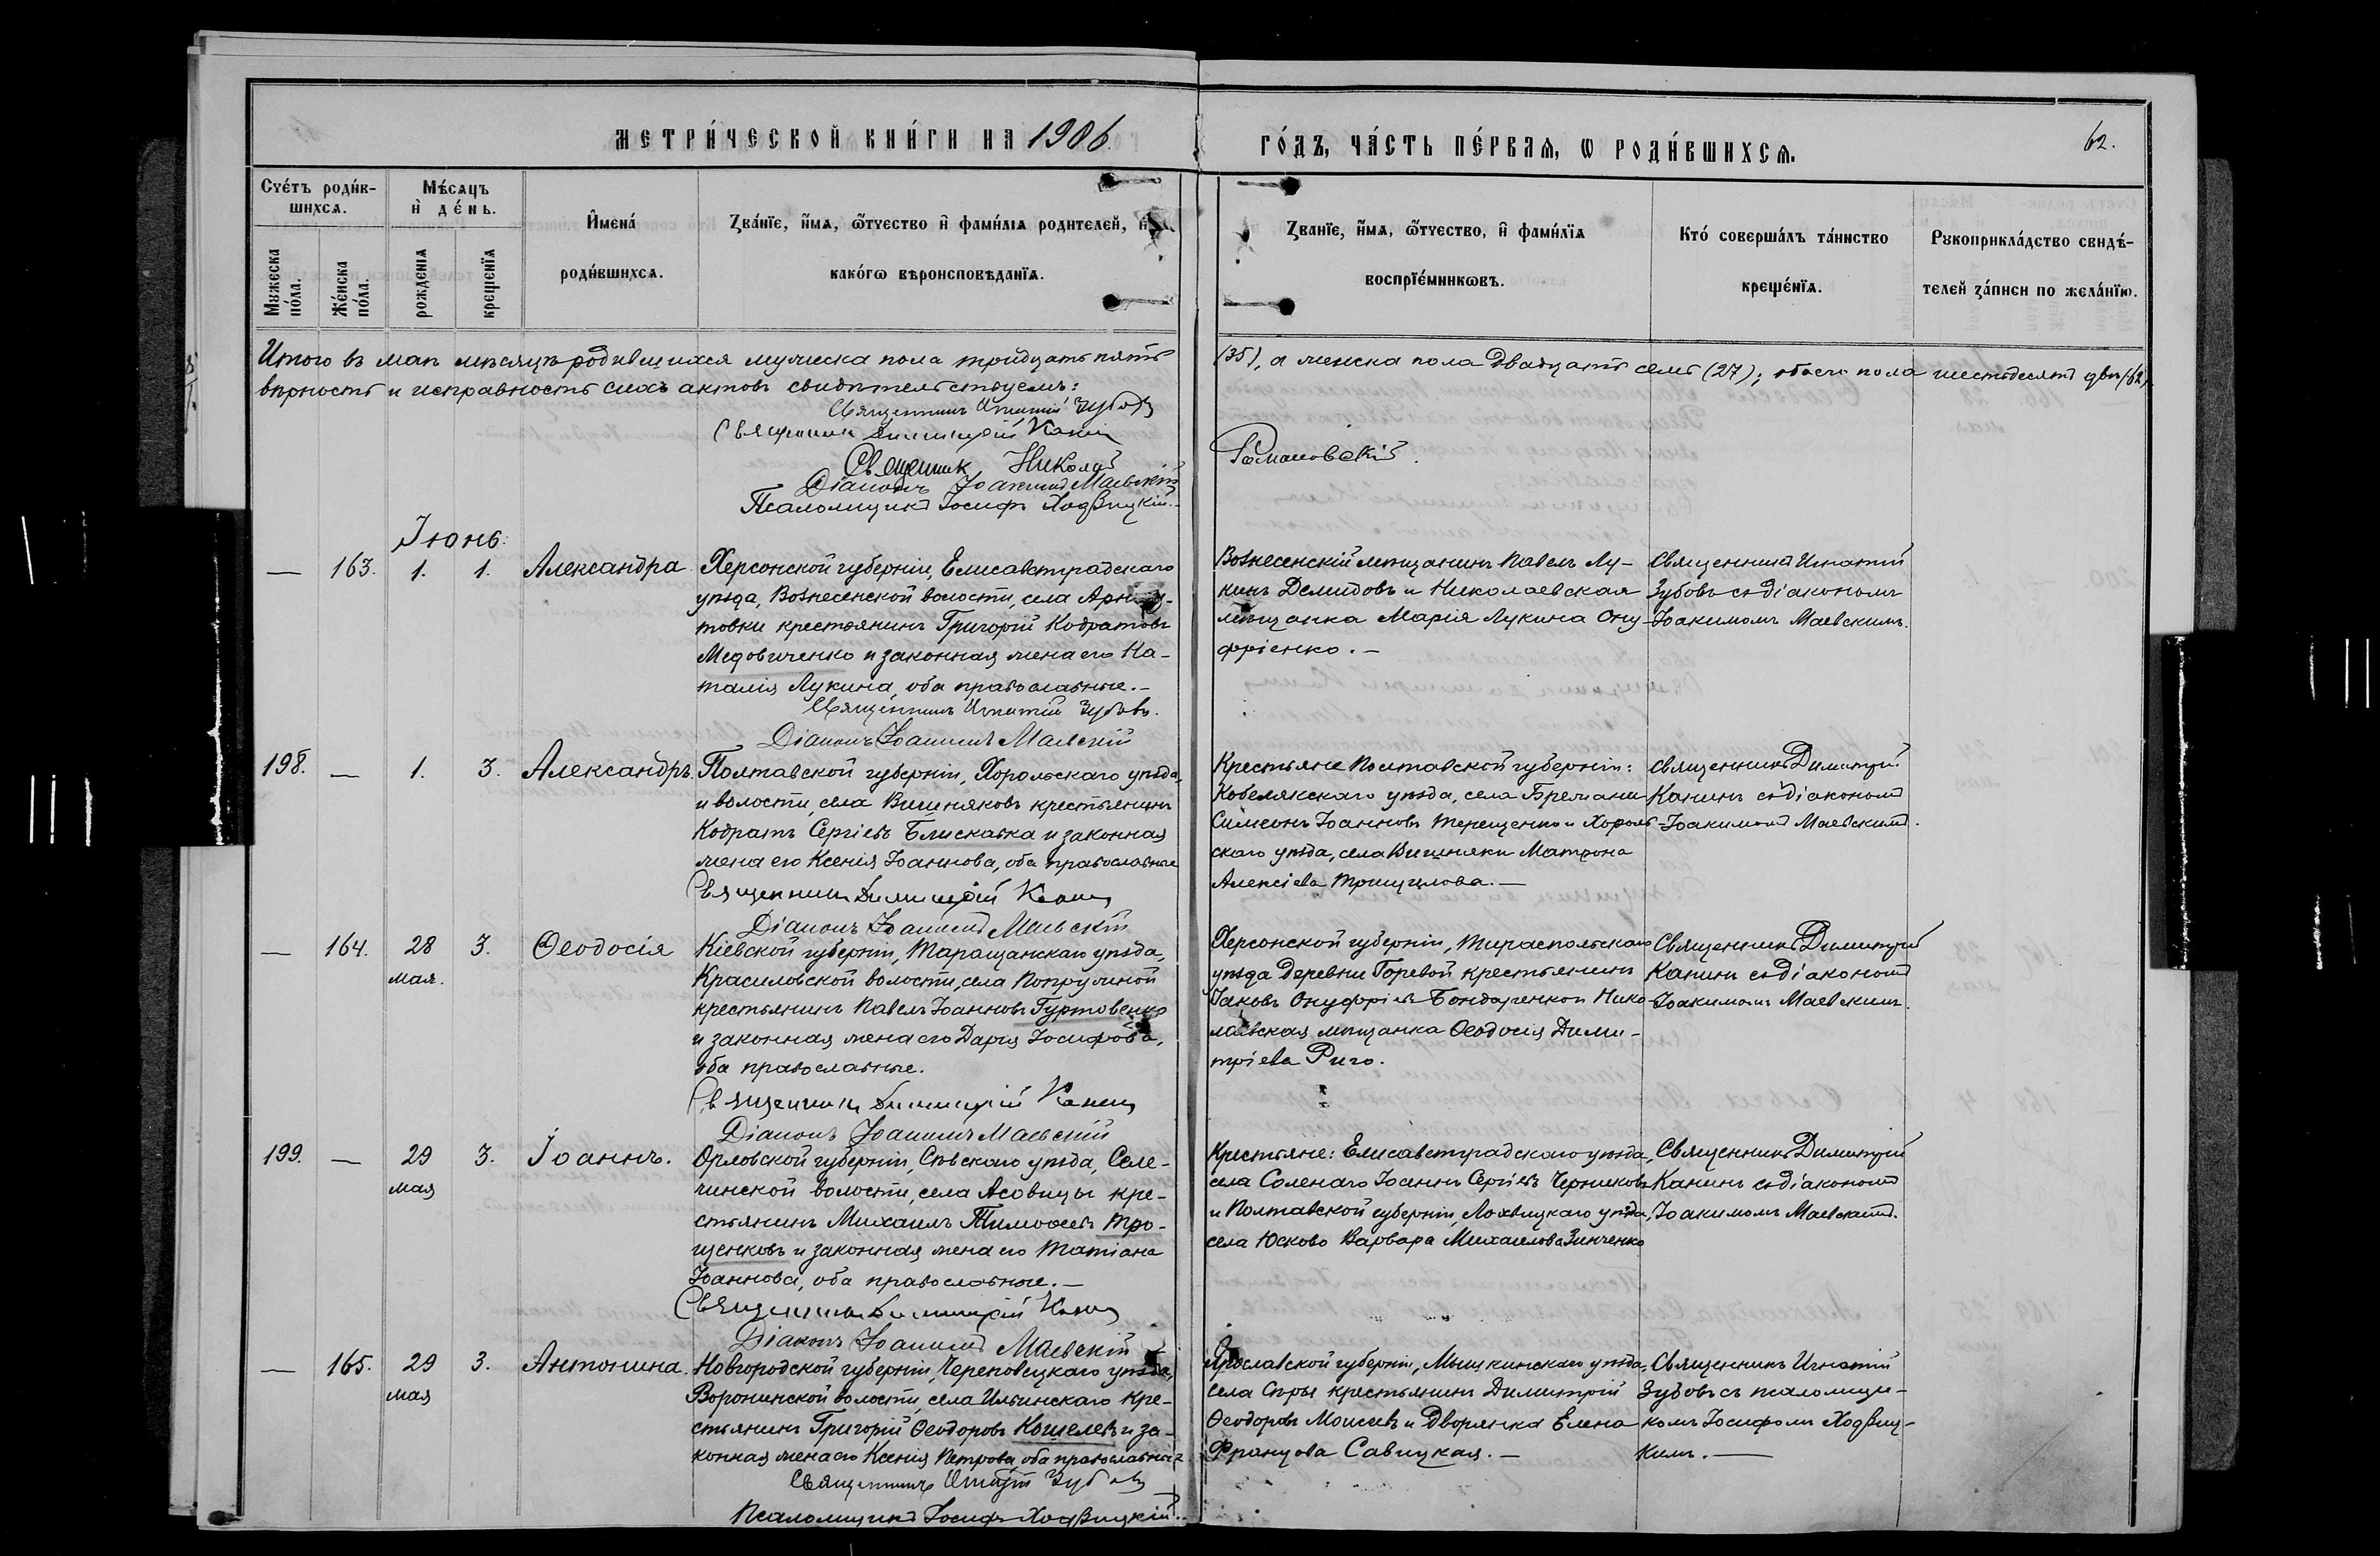 МЕТРИ́ЧЕСКОЙ КНИ́ГИ НА 1906
ГО́ДЪ, ЧА́СТЬ ПЕ́РВАѦ, Ѡ РОДИ́ВШИХСѦ.
62.
Счетъ роди́вшихсѧ.
Мѣ́сѧцъ и҆ де́нь.
Мꙋжеска по́ла.
Же́нска по́ла.
рожденїѧ
крещенїѧ
И҆мена́ роди́вшихсѧ.
Зва́нїе, и҆́мѧ, ѻ҆́тчество и҆ фами́лїѧ родителей, и҆
како́гѡ вѣроисповѣданїѧ.
Зва́нїе, и҆́мѧ, ѻ҆́тчество, и҆ фами́лїѧ
воспрїе́мникѡвъ.
Кто́ соверша́лъ та́инство
креще́нїѧ.
Рꙋкоприкла́дство свидѣ́-
телей за́писи по жела́нїю.
Итого въ маѣ мѣсяцѣ родившихся мужеска пола тридцать пять
(35), а женска пола двадцать семь (27); обоего пола шестьдесятъ два (62)
вѣрность и исправность сихъ актовъ свидѣтельствуемъ:
Священникъ Игнатій Зубовъ
Священникъ Димитрій Канинъ
Священник Николай
Романовскій.
Діаконъ Іоакимъ Маевскій
Псаломщикъ Іосифъ Ходвицкій.
Іюнь:
— 163. 1. 1. Александра
Херсонской губерніи, Елисаветградскаго
уѣзда, Вознесенской волости, села Арнау-
товки крестьянинъ Григорій Кодратовъ
Медовиченко и законная жена его На-
талія Лукина, оба православные.—
Священникъ Игнатій Зубовъ.
Діаконъ Іоакимъ Маевскій
Вознесенскій мѣщанинъ Павелъ Лу-
кинъ Демидовъ и Николаевская
мѣщанка Марія Лукина Ону-
фріенко.—
Священникъ Игнатій
Зубовъ съ діакономъ
Іоакимомъ Маевскимъ.
198. — 1. 3. Александръ.
Полтавской губерніи, Хорольскаго уѣзда,
и волости, села Вишняковъ крестьянинъ
Кодратъ Сергіевъ Блискавка и законная
жена его Ксенія Іоаннова, оба православные
Священникъ Димитрій Канинъ
Діаконъ Іоакимъ Маевскій
Крестьяне Полтавской губерніи:
Кобелякскаго уѣзда, села
Симеонъ Іоанновъ Терещенко и Хороль-
скаго уѣзда, села Вишняки Матрона
Алексіева
Священникъ Димитрій
Канинъ съ діакономъ
Іоакимомъ Маевскимъ.
— 164. 28 мая. 3. Ѳеодосія
Кіевской губерніи, Таращанскаго уѣзда,
Красиловской волости, села Попружной
крестьянинъ Павелъ Іоанновъ Гуртовенко
и законная жена его Дарія Іосифова,
оба православные.
Священникъ Димитрій Канинъ
Діаконъ Іоакимъ Маевскій
Херсонской губерніи, Тираспольскаго
уѣзда деревни Горевой крестьянинъ
Іаковъ Онуфріевъ Бондаренко и Нико-
лаевская мѣщанка Ѳеодосія Дими-
тріева Риго.
Священникъ Димитрій
Канинъ съ діакономъ
Іоакимомъ Маевскимъ.
199. — 29 мая 3. Іоаннъ.
Орловской губерніи, Сѣвскаго уѣзда, Селе-
чинской волости, села Асовицы кре-
стьянинъ Михаилъ Тимоѳеевъ Тро-
щенковъ и законная жена его Татіана
Іоаннова, оба православные.—
Священникъ Димитрій Канинъ
Діаконъ Іоакимъ Маевскій
Крестьяне: Елисаветградскаго уѣзда,
села Соленаго Іоаннъ Сергіевъ Черниковъ
и Полтавской губерніи, Лохвицкаго уѣзда,
села Юсково Варвара Михаилова Зинченко
Священникъ Димитрій
Канинъ съ діакономъ
Іоакимомъ Маевскимъ.
— 165. 29 мая 3. Антонина.
Новгородской губерніи, Череповецкаго уѣзда,
Воронинской волости, села Ильинскаго кре-
стьянинъ Григорій Ѳеодоровъ Кошелевъ и за-
конная жена его Ксенія Петрова, оба православные
Священникъ Игнатій Зубовъ
Псаломщикъ Іосифъ Ходвицкій.
Ярославской губерніи, Мышкинскаго уѣзда,
села крестьянинъ Димитрій
Ѳеодоровъ Моисеевъ и дворянка Елена
Францова Савицкая.—
Священникъ Игнатій
Зубовъ съ псаломщи-
комъ Іосифомъ Ходвиц-
кимъ.—